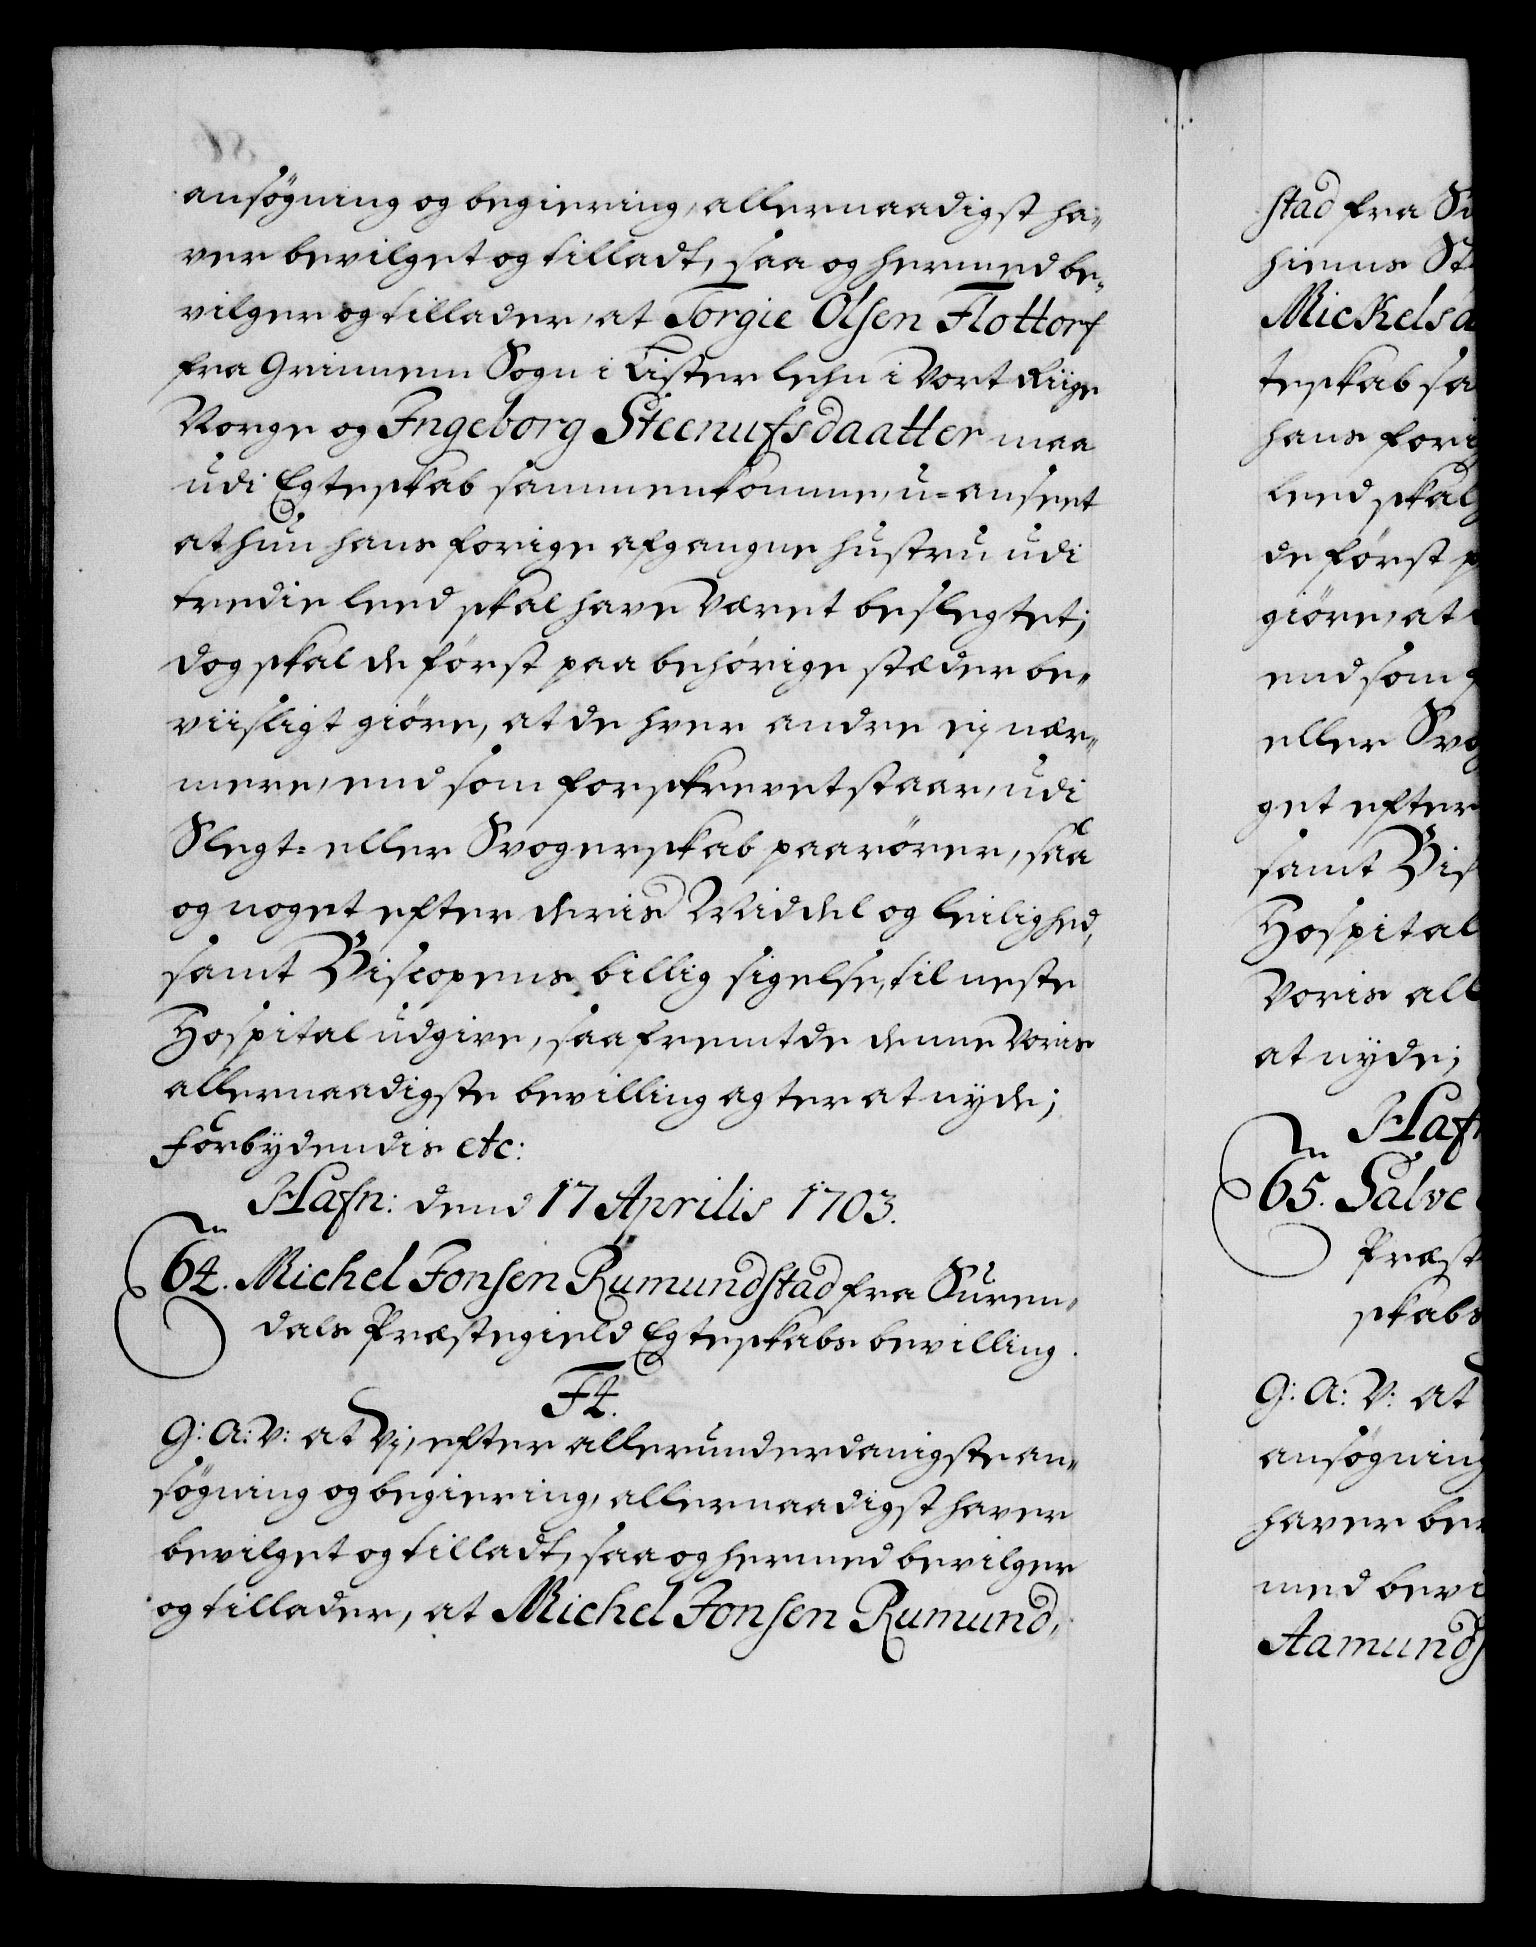 ansøgning og begiering, allernaadigst ha-
ver bevilget og tilladt, saa og hermed be-
vilger og tillader, at Torgie Olsen Flottorf
fra Grinnem Sogn i Lister lehn i Vort Riige
Norge og Ingeborg Steenufsdaatter maa
udi Egteskab sammenkomme, u-anseet
at hun hans forige afgangne hustru udi
tredie leed skal have Været beslegtet;
dog skal de først paa behørige stæder be-
viisligt giøre, at de hver andre ej nær-
mere, end som forskrevet staar, udi
Slegt- eller Svogerskab paarører, saa
og noget efter deris Middel og leilighed,
samt Biscopens billig sigelse, til neste
Hospital udgive, saafremt de denne Voris
allernaadigste bevilling agter at nyde;
Forbydendis etc:
Hafn: dend 17 Aprilis 1703.
64. Michel Jonsen Rumundstad fra Suren-
dals Præstegield Egteskabs bevilling.
F4.
G: A: V: at Vj, efter allerunderdanigste an-
søgning og begiering, allernaadigst haver
bevilget og tilladt, saa og hermed bevilger
og tillader, at Michel Jonsen Rumund-
stad fra Su
hiems St
Mickelsd
teskab sa
hans forig
leed skal
de først p
giøre, at
end som f
eller Svog
get efter
samt Bis
Hospital
Voris all
at nyde;
Hafn
65. Salve
Præst
skabs
G: A: V: at
ansøgning
haver bev
med bevi
Aamunds